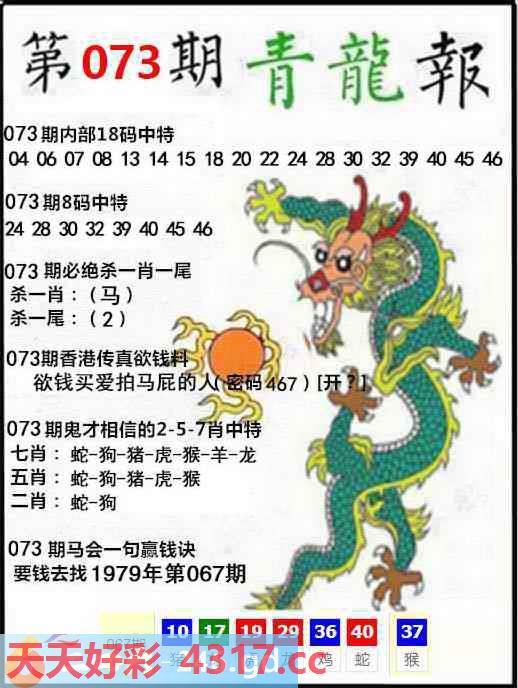 第073期 青龍報
073期内部18码中特
04 06 07 08 13 14 15 18 20 22 24 28 30 32 39 40 45 46
073期8码中特
24 28 30 32 39 40 45 46
073期必绝杀一肖一尾
杀一肖：(马)
杀一尾：(2)
073期香港传真欲钱料
欲钱买爱拍马屁的人(密码467)[开?]
073期鬼才相信的2-5-7肖中特
七肖：蛇-狗-猪-虎-猴-羊-龙
五肖：蛇-狗-猪-虎-猴
二肖：蛇-狗
073期马会一句赢钱诀
要钱去找1979年第067期
067期 10 17 19 29 36 40 37
猪 龙 鸡 蛇 猴
天天好彩-4317.cc